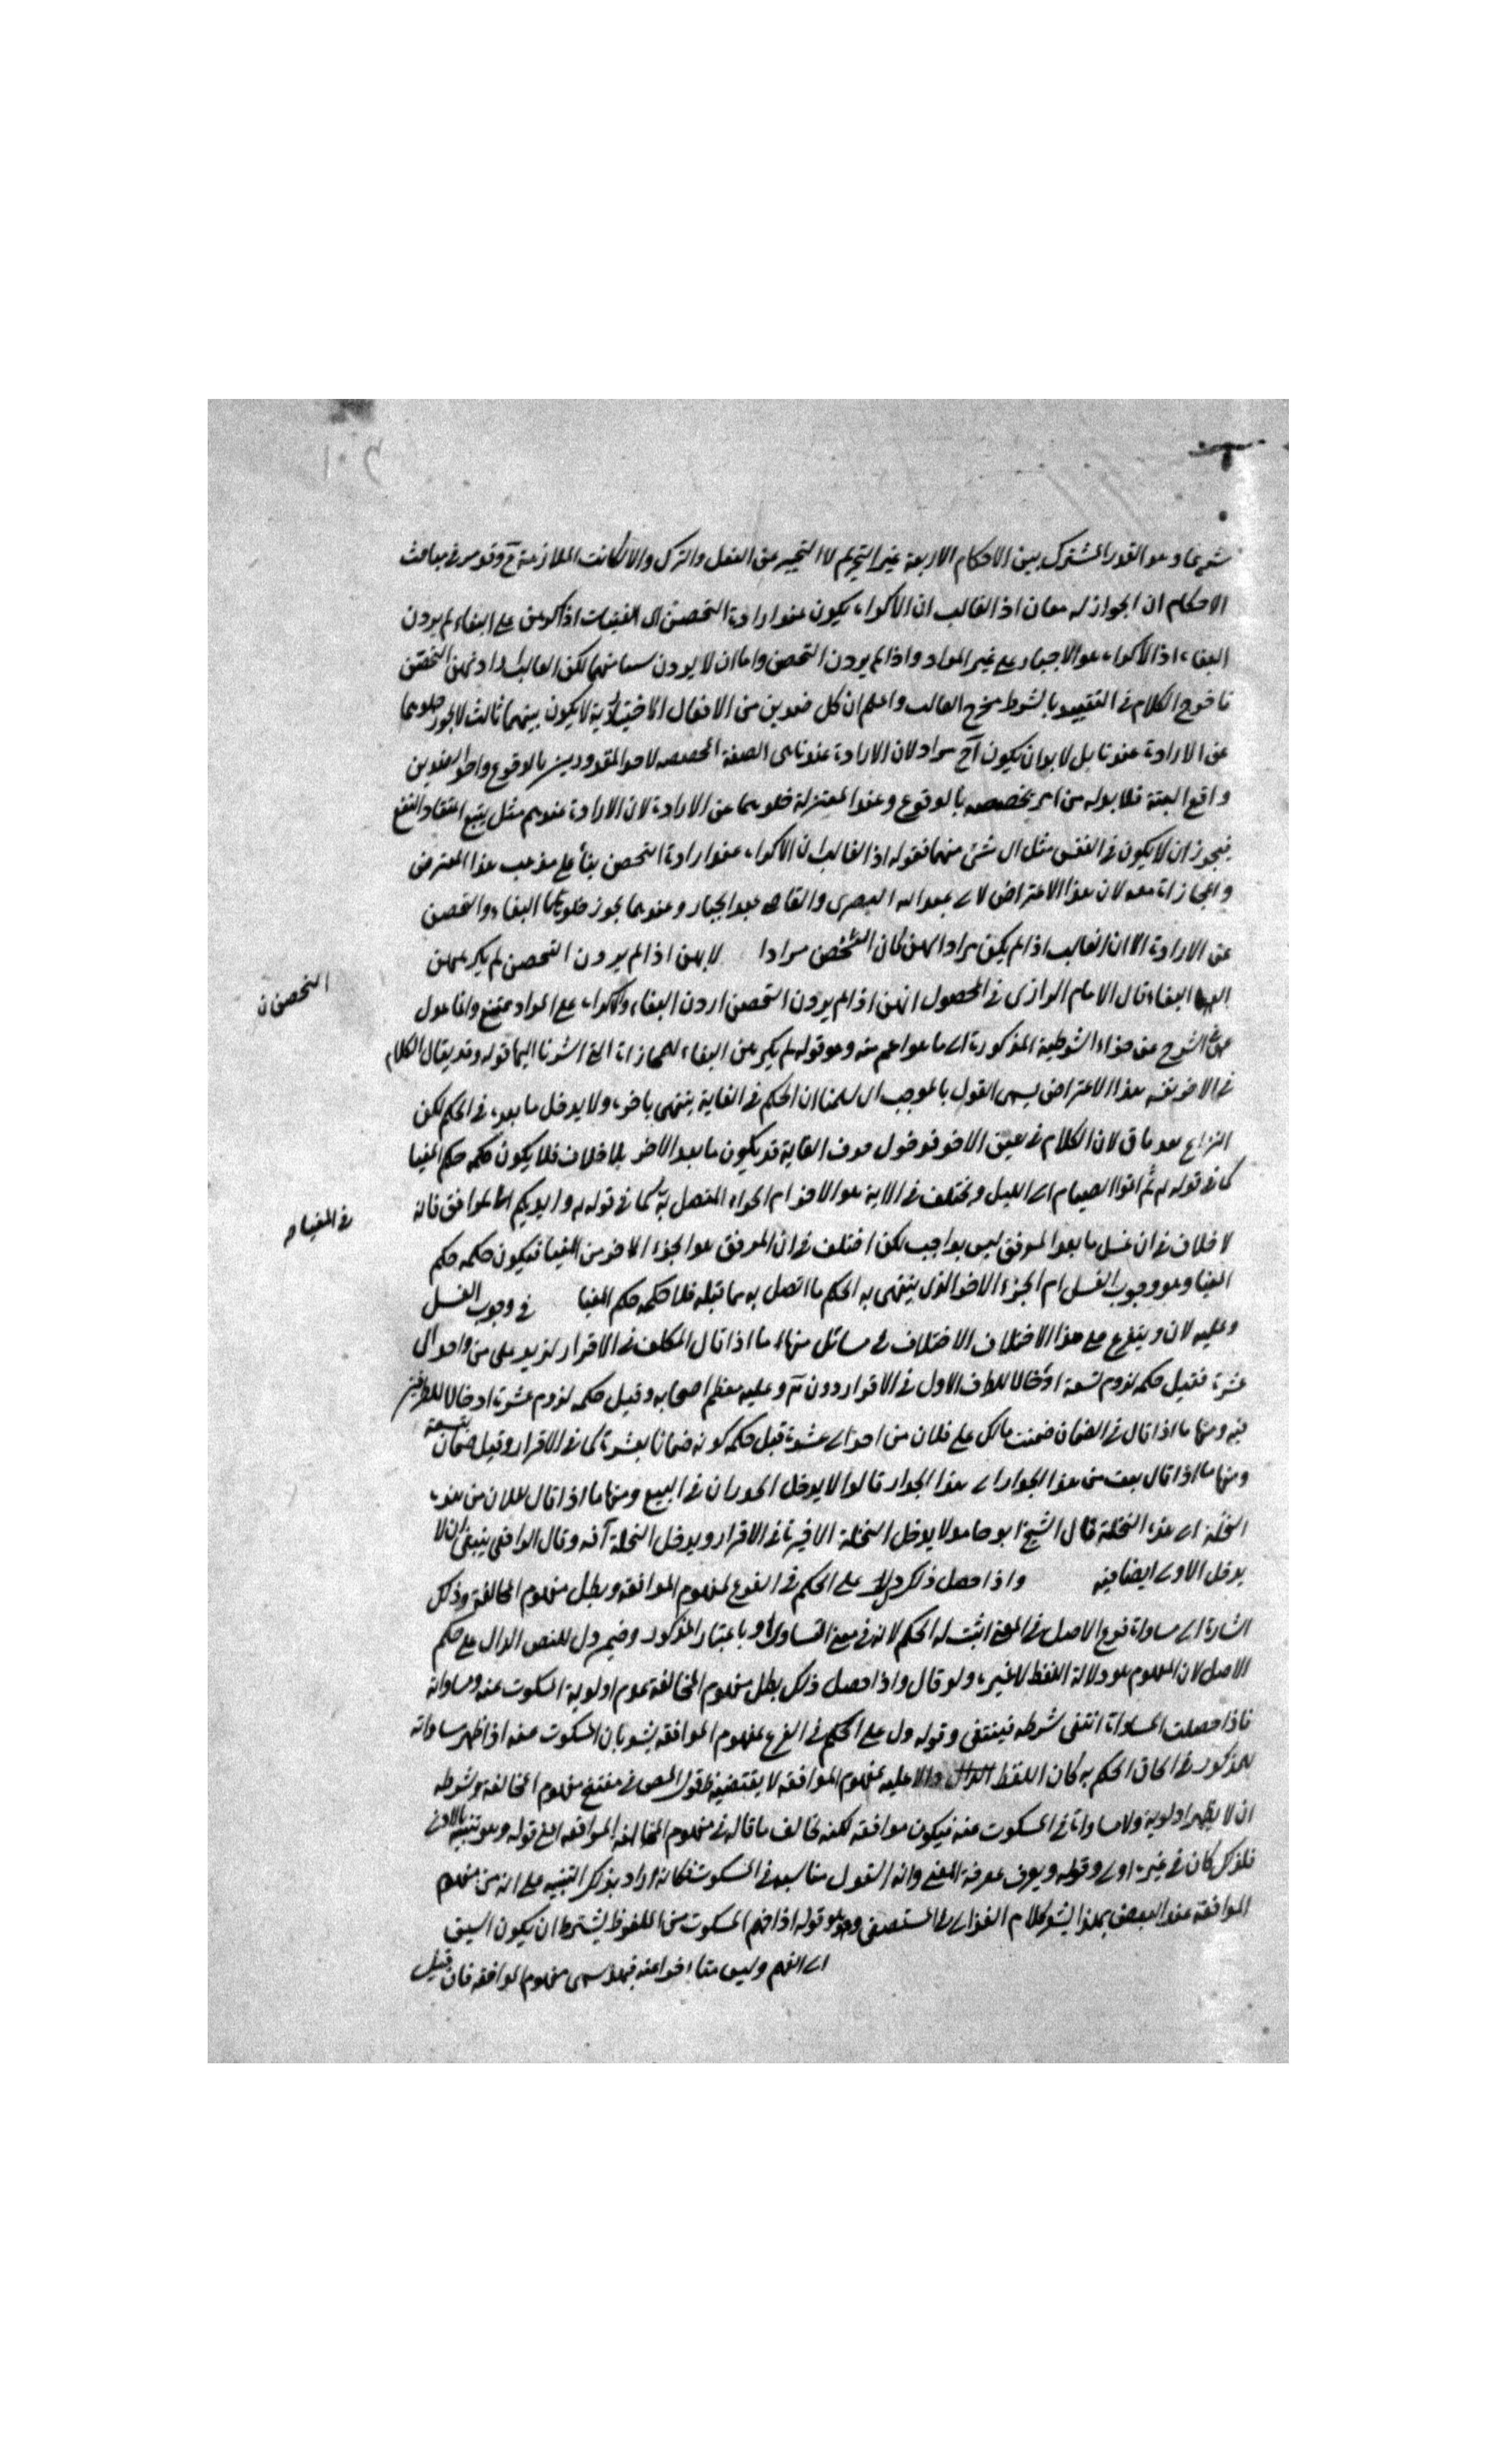 شرعا وهو القدر المشترك بين الاحكام الاربعة غير التحريم لا التخيير بين الفعل والترك والا لكانت الملازمة وقد مر في مباحث
الاحكام ان الجواز له معان اذ الغالب ان الاكراه يكون عند ارادة التحصن اى الفتيات اذا اكرهن على البغاء لم يردن
البغاء اذ الاكراه هو الاجبار على غير المراد واذا لم يردن التحصن واما ان لا يردن شيئا منهما لكن الغالب ارادتهن التحصن
فاخرج الكلام في التقييد بالشرط مخرج الغالب واعلم ان كل ضدين من الافعال الاختيارية لا يكون بينهما ثالث لا يجوز خلوهما
عن الارادة عندنا بل لا بد ان يكون احدهما مراد لان الارادة عندنا هى الصفة المخصصة لاحد المقدورين بالوقوع واحد الضدين
واقع البتة فلا بد له من امر يخصصه بالوقوع وعند المعتزلة خلوهما عن الارادة لان الارادة عندهم ميل يتبع اعتقاد النفع
فيجوز ان لا يكون في النفس ميل الى شئ منهما فقوله اذ الغالب ان الاكراه عند ارادة التحصن بناء على مذهب هذا المعترض
والمجازاة معه لان هذا الاعتراض لابى عبد الله البصرى والقاضى عبد الجبار وعندهما يجوز خلو البغاء والتحصن
عن الارادة الا ان الغالب اذا لم يكن مرادا لهن كان التحصن مرادا لانهن اذا لم يردن التحصن لم يكرههن
البغاء قال الامام الرازى في المحصول انهن اذا لم يردن التحصن اردن البغاء والاكراه على المراد ممتنع وانما عدل
الشرح عن جزاء الشرطية المذكورة الى ما هو اعم منه وهو قوله لم يكرهن البغاء للمجازاة التى اشرنا اليها قوله وقد يقال الكلام
في الاخر نفسه هذا الاعتراض يسمى القول بالموجب اى سلمنا ان الحكم في الغاية ينتهى باخره ولا يدخل ما بعده في الحكم لكن
النزاع بعد باق لان الكلام في عين الاخر فدخول حرف الغاية قد يكون ما بعد الاخر بلا خلاف فلا يكون حكمه حكم المغيا
كما في قوله ثم اتموا الصيام الى الليل ويختلف في الاية هو الاخر ام الجزء المتصل به كما في قوله وايديكم الى المرافق فانه
لا خلاف في ان غسل ما بعد المرفق ليس بواجب لكن اختلف في ان المرفق هو الجزء الاخر من المغيا فيكون حكمه حكم
المغيا وهو وجوب الغسل ام الجزء الاخر الذى ينتهى به الحكم ما اتصل به مما قبله فلا حكمه حكم المغيا في وجوب الغسل
وعليه لان ويتفرع على هذا الاختلاف الاختلاف في مسائل منها ما اذا قال المكلف في الاقرار لزيد على من واحد الى
عشرة فقيل حكمه لزوم تسعة ادخالا للطرف الاول في الاقرار دون وعليه معظم اصحابه وقيل حكمه لزوم عشرة ادخالا للطرفين
فيه ومنها ما اذا قال في الضمان ضمنت مالك على فلان من احد الى عشرة قيل حكمه كونه ضمانا بعشرة كما في الاقرار وقيل ضمان بتسعة
ومنها ما اذا قال بعت من هذا الجدار الى هذا الجدار قالوا لا يدخل الجدران في البيع ومنها ما اذا قال لفلان من هذه
النخلة الى هذه النخلة قال الشيخ ابو حامد لا يدخل النخلة الاخيرة في الاقرار ويدخل النخلة وقال الرافعى ينبغى ان لا
يدخل الاولى ايضا فيه واذا حصل ذلك دل على الحكم في الفرع لمفهوم الموافقة وبطل مفهوم المخالفة وذلك
اشارة الى مساواة فرع الاصل في المعنى اثبت له الحكم لانه في معنى التساوى او باعتبار المذكور وضمير دل للنص الدال على حكم
الاصل لان المفهوم هو دلالة اللفظ لا غير ولو قال واذا حصل ذلك بطل مفهوم المخالفة عدم اولوية المسكوت عنه ومساواته
فاذا حصلت المساواة انتفى شرطه فينتفى وقوله دل على الحكم في الفرع لمفهوم الموافقة يشعر بان المسكوت عنه اذا ظهر مساواته
للمذكور في الحاق الحكم به كان اللفظ دالا عليه بمفهوم الموافقة لا يقتضيه قول المص في مفهوم المخالفة وشرطه
ان لا يظهر اولوية ولا مساواة في المسكوت عنه فيكون موافقة لكنه خالف ما قاله في مفهوم الموافقة اعنى قوله وهو تنبيه بالادنى
فلذلك كان في غيره اولى وقوله ويعرف بمعرفة المعنى وانه اشد مناسبة في المسكوت فكانه اراد بذكر التنبيه على انه من مفهوم
الموافقة عند البعض بهذا يشعر كلام الغزالى في المستصفى وهو قوله اذا فهم المسكوت من الملفوظ يشترط ان يكون اسبق
الى الفهم وليس متاخرا عنه فهذا يسمى مفهوم الموافقة فان قيل
التحصن ن
في المغيا م